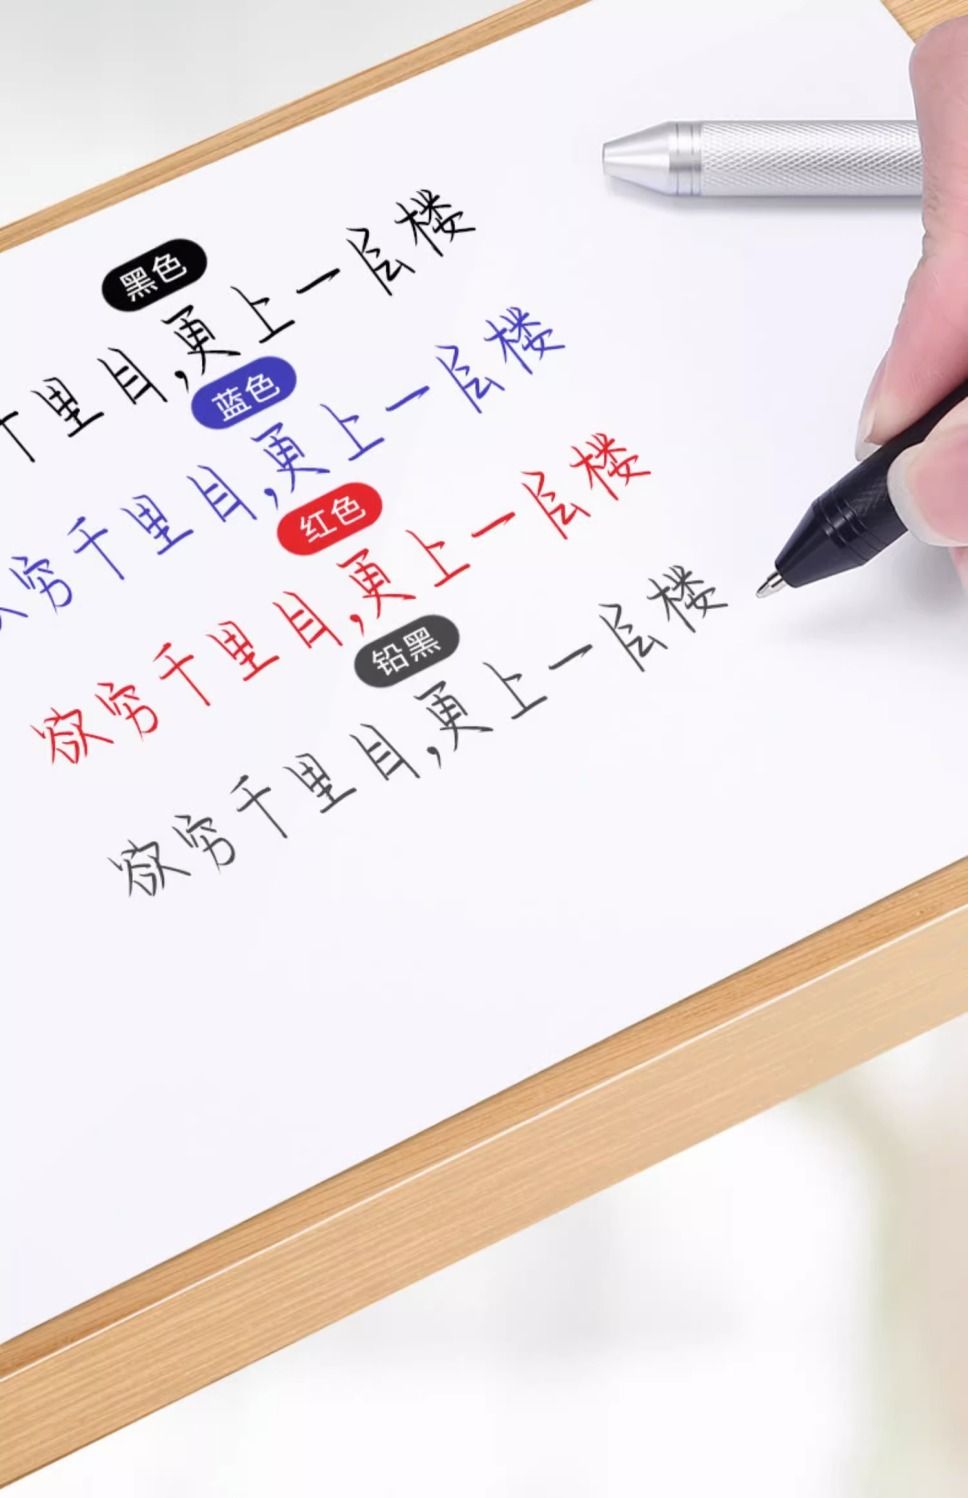 黑色
千里目,更上一层楼
蓝色
穷千里目,更上一层楼
红色
欲穷千里目,更上一层楼
铅黑
欲穷千里目,更上一层楼